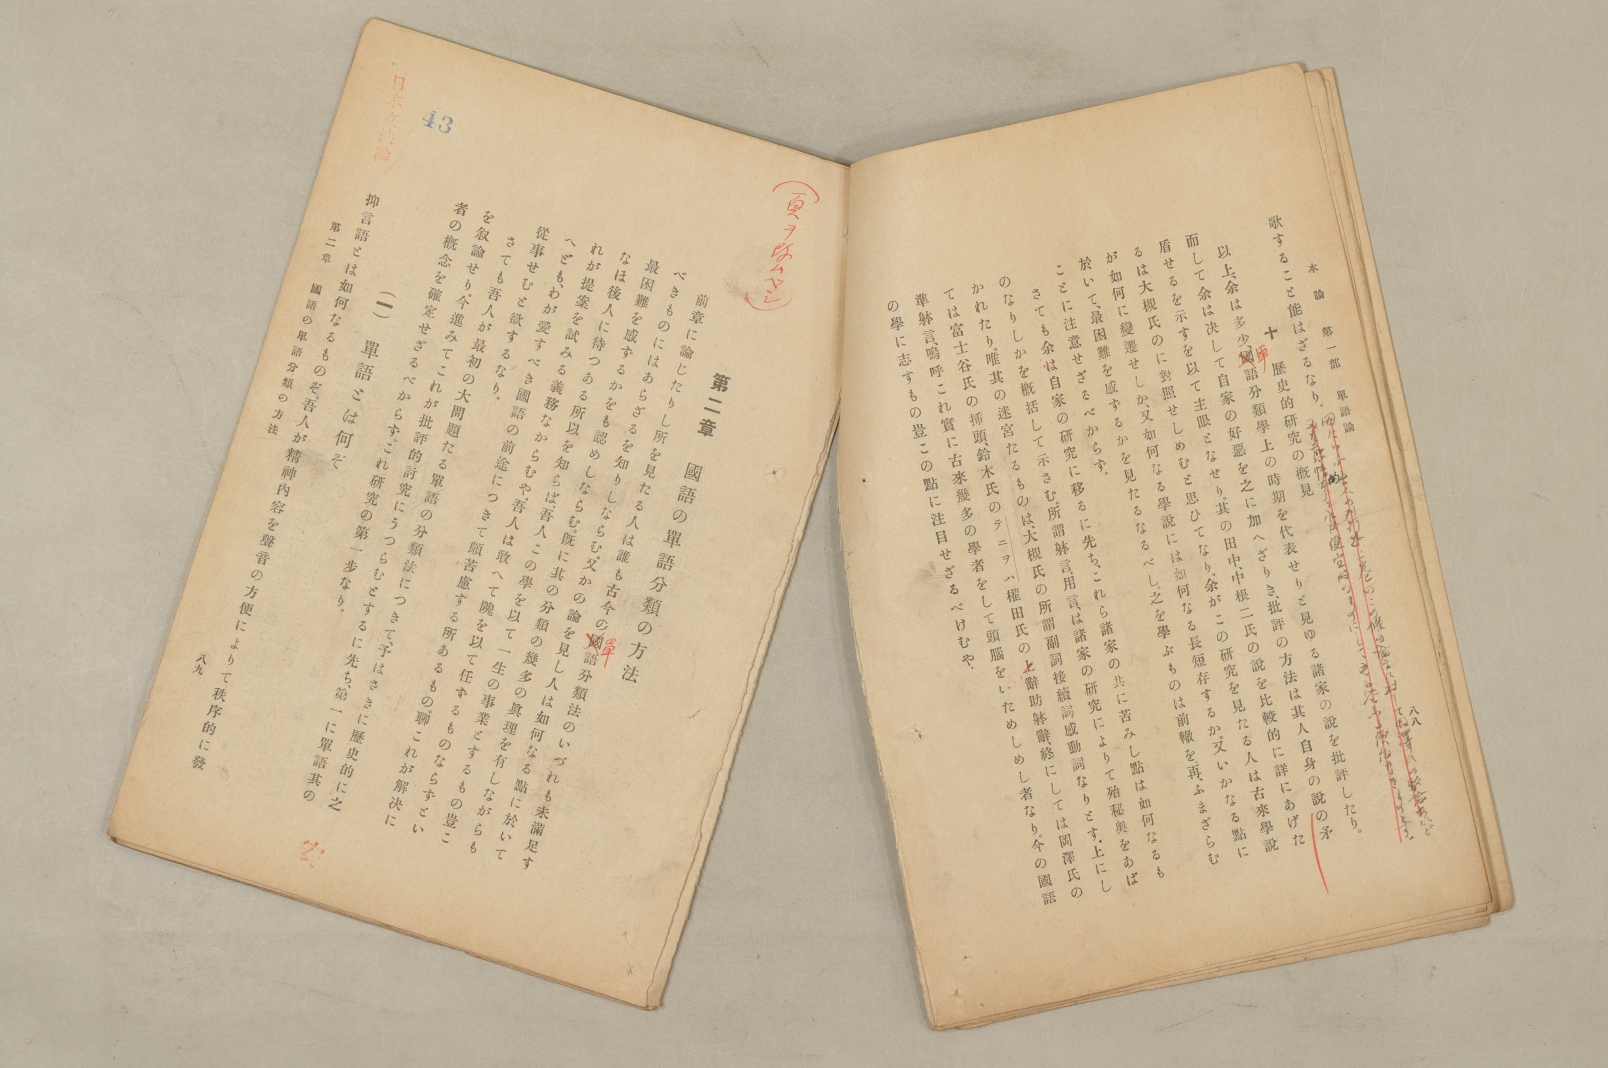 本論　第一部　單語論
八八
歌すること能はざるなり。
十　歷史的研究の槪見
以上、余は多少、國語分類學上の時期を代表せりと見ゆる諸家の說を批評したり。
單
而して余は決して自家の好惡を之に加へざりき、批評の方法は其人自身の說の矛
盾せるを示すを以て主眼となせり。其の田中、中根二氏の說を比較的に詳にあげた
るは大槻氏のに對照せしめむと思ひてなり。余がこの硏究を見たる人は古來學說
が如何に變遷せしか、又如何なる學說には如何なる長短存するか、又いかなる點に
於いて、最困難を感ずるかを見たるなるべし。之を學ぶものは前轍を再、ふまざらむ
ことに注意せざるべからず。
さても余は自家の硏究に移るに先ち、これら諸家の共に苦みし點は如何なるも
のなりしかを槪括して示さむ。所謂躰言、用言は諸家の硏究によりて殆秘奧をあば
かれたり。唯其の迷宮たるものは、大槻氏の所謂副詞接續詞感動詞なりとす。上にし
ては富士谷氏の揷頭、鈴木氏のテニヲハ權田氏の上辭助躰辭終にしては岡澤氏の
準躰言、嗚呼これ實に古來幾多の學者をして頭腦をいためしめし者なり。今の國語
の學に志すもの豈この點に注目せざるべけむや。
(頁ヲ改ムヿ)
第二章　國語の單語分類の方法
前章に論じたりし所を見たる人は誰も古今の國語分類法のいづれも未滿足す
單
べきものにはあらざるを知りしならむ。又かの論を見し人は如何なる點に於いて
最困難を感ずるかをも認めしならむ。旣に其の分類の幾多の眞理を有しながらも
なほ後人に待つある所以を知らば、吾人この學を以て一生の事業とするもの豈こ
れが提案を試みる義務なからむや。吾人は敢へて隗を以て任ずるものならずとい
へども、わが愛すべき國語の前途につきて頗苦慮する所あるもの、聊これが解決に
從事せむと欲するなり。
さても吾人が最初の大問題たる單語の分類法につきて、予はさきに歷史的に之
を敘論せり。今進みてこれが批評的討究にうつらむとするに先ち、第一に單語其の
者の槪念を確定せざるべからず。これ硏究の第一步なり。
(一)　單語とは何ぞ
抑言語とは如何なるものぞ。吾人が精神內容を聲音の方便によりて秩序的に發
第二章　國語の單語分類の方法
八九
43
日本文法論